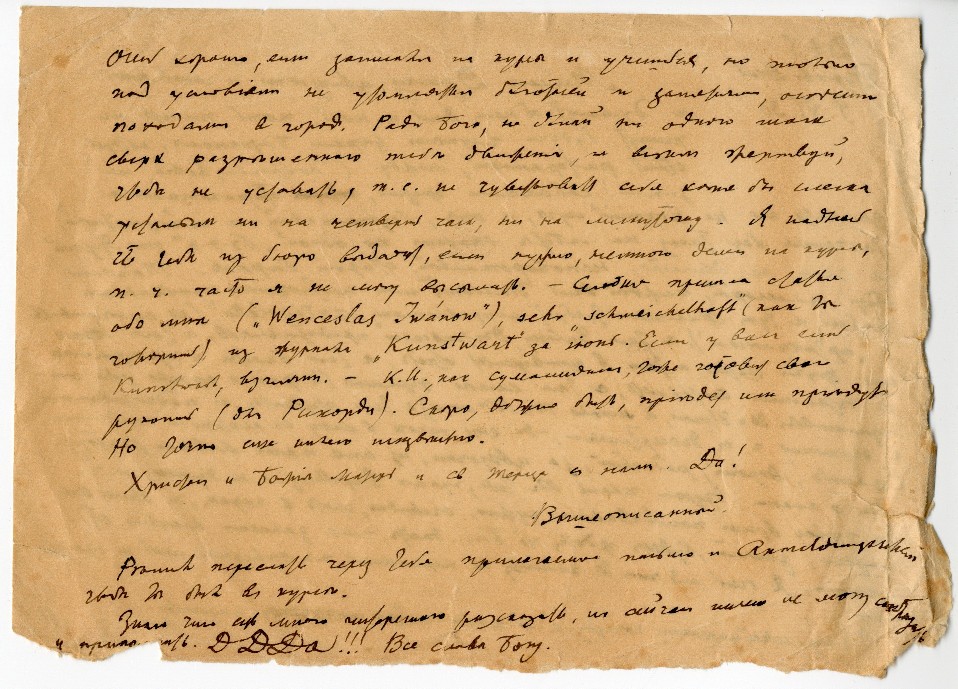 Очень хорошо, если записался на курсы и учишься, но только
под условием не утомляться беготней и занятиями, особенно
походами в город. Ради Бога, не делай ни одного шага
сверх разрешенного тебе движения, и всем жертвуй,
чтобы не уставать, т. е. не чувствовать себя хотя бы слегка
усталым ни на четверть часа, ни на минуточку. Я надеюсь
что тебе из бюро выдадут, если нужно, немного денег на курсы,
п. ч. часто я не могу высылать. – Сегодня пришла статья
обо мне („Wenceslas Iwánow"), sehr „schmeichelhaft" (как ты
говоришь) из журнала „Kunstwart" за июнь. Если у вас есть
Kunstwart, взгляни. – К.И. как сумасшедшая, тоже готовит свою
(для Рикорди). Скоро, должно быть, приедет или приедут
Но точно еще ничего неизвестно.
Христос и Божия Матерь и св с нами. Да!
Вышеописанной.
переслать через Тебя прилагаемое письмо и
чтобы ты был в курсе.
Знаю что еще много интересного рассказать, но сейчас ничего не могу
и Д Д Да!!! Все слава Богу.